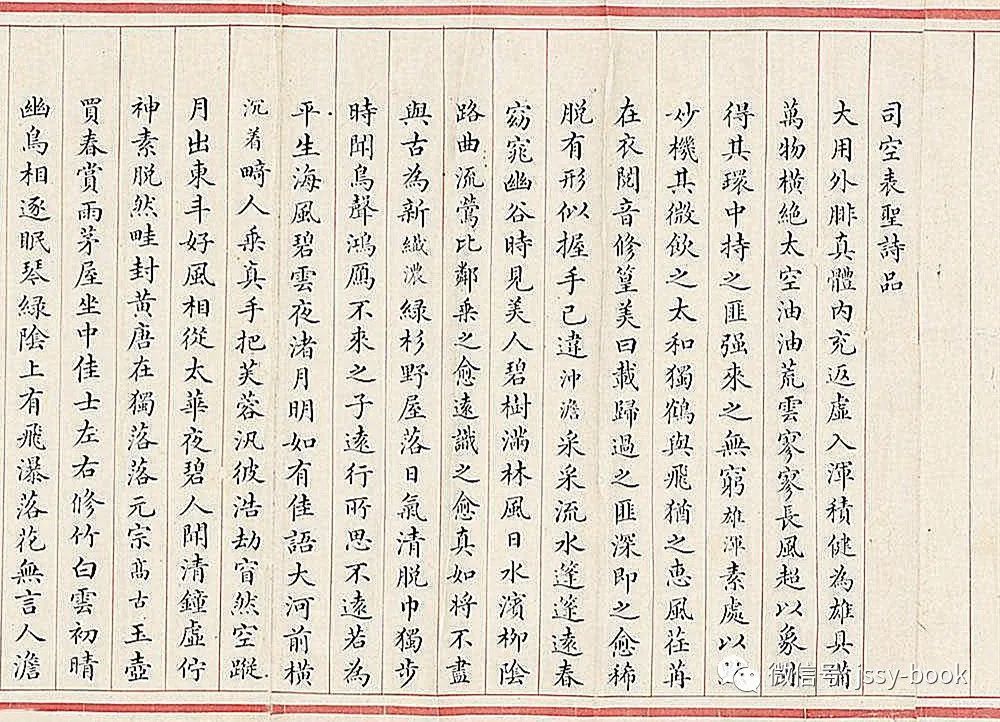 司空表聖詩品
大用外腓真體內充返虛入渾積健為雄具
萬物橫絕太空油油荒雲寥寥長風超以象
得其環中持之匪强來之無窮雄渾素處以
妙機其微飲之太和獨鶴與飛猶之惠風荏苒
在衣閱音修篁美曰載歸過之匪深即之愈稀
脱有形似握手已違沖澹采采流水蓬蓬遠春
窈窕幽谷時見美人碧樹滿林風日水濱柳陰
路曲流鶯比鄰乘之愈遠識之愈真如將不盡
與古為新纖濃綠杉野屋落日氣清脱巾獨步
時聞鳥聲鴻鴈不來之子遠行所思不遠若為
平生海風碧雲夜渚月明如有佳語大河前橫
沉着畸人乘真手把芙蓉汎彼浩劫窅然空蹤
月出東斗好風相從太華夜碧人聞清鐘虛佇
神素脱然畦封黄唐在獨落落元宗髙古玉壺
買春賞雨茅屋坐中佳士左右修竹白雲初晴
幽鳥相逐眠琴綠陰上有飛瀑落花無言人澹
微信号: jssy-book